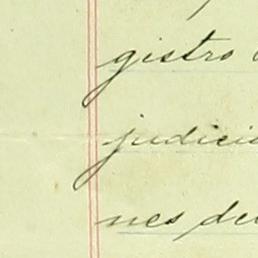 gistro
judici
nes de